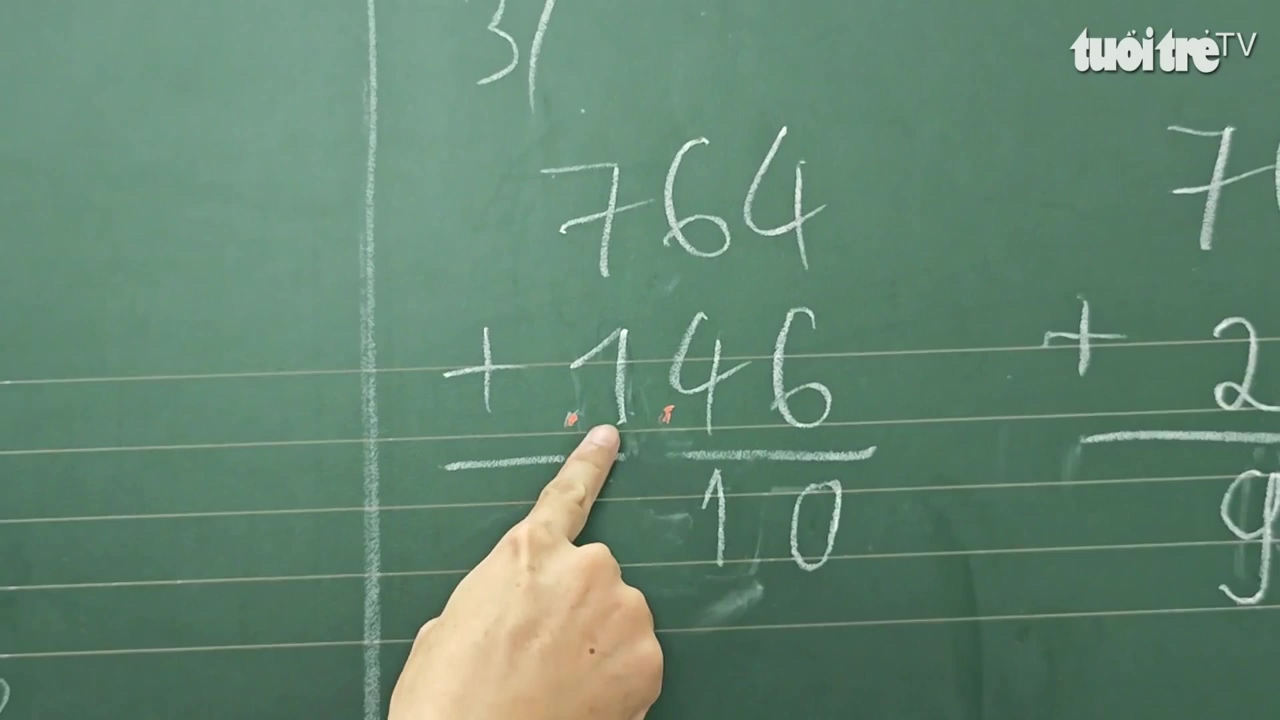 tuổi trẻ TV
3/
764
+ 146
10
7
+ 2
9